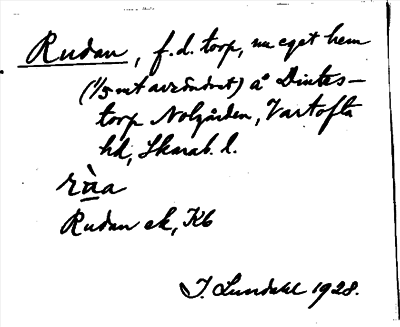 Rudan, f.d. torp, nu eget hem
(1/5 mt avsöndrat) å Dintes-
torp Nolgården, Vartofta
hd, Skarab. l.
rὰa
Rudan ek, Kb
I. Lundahl 1928.